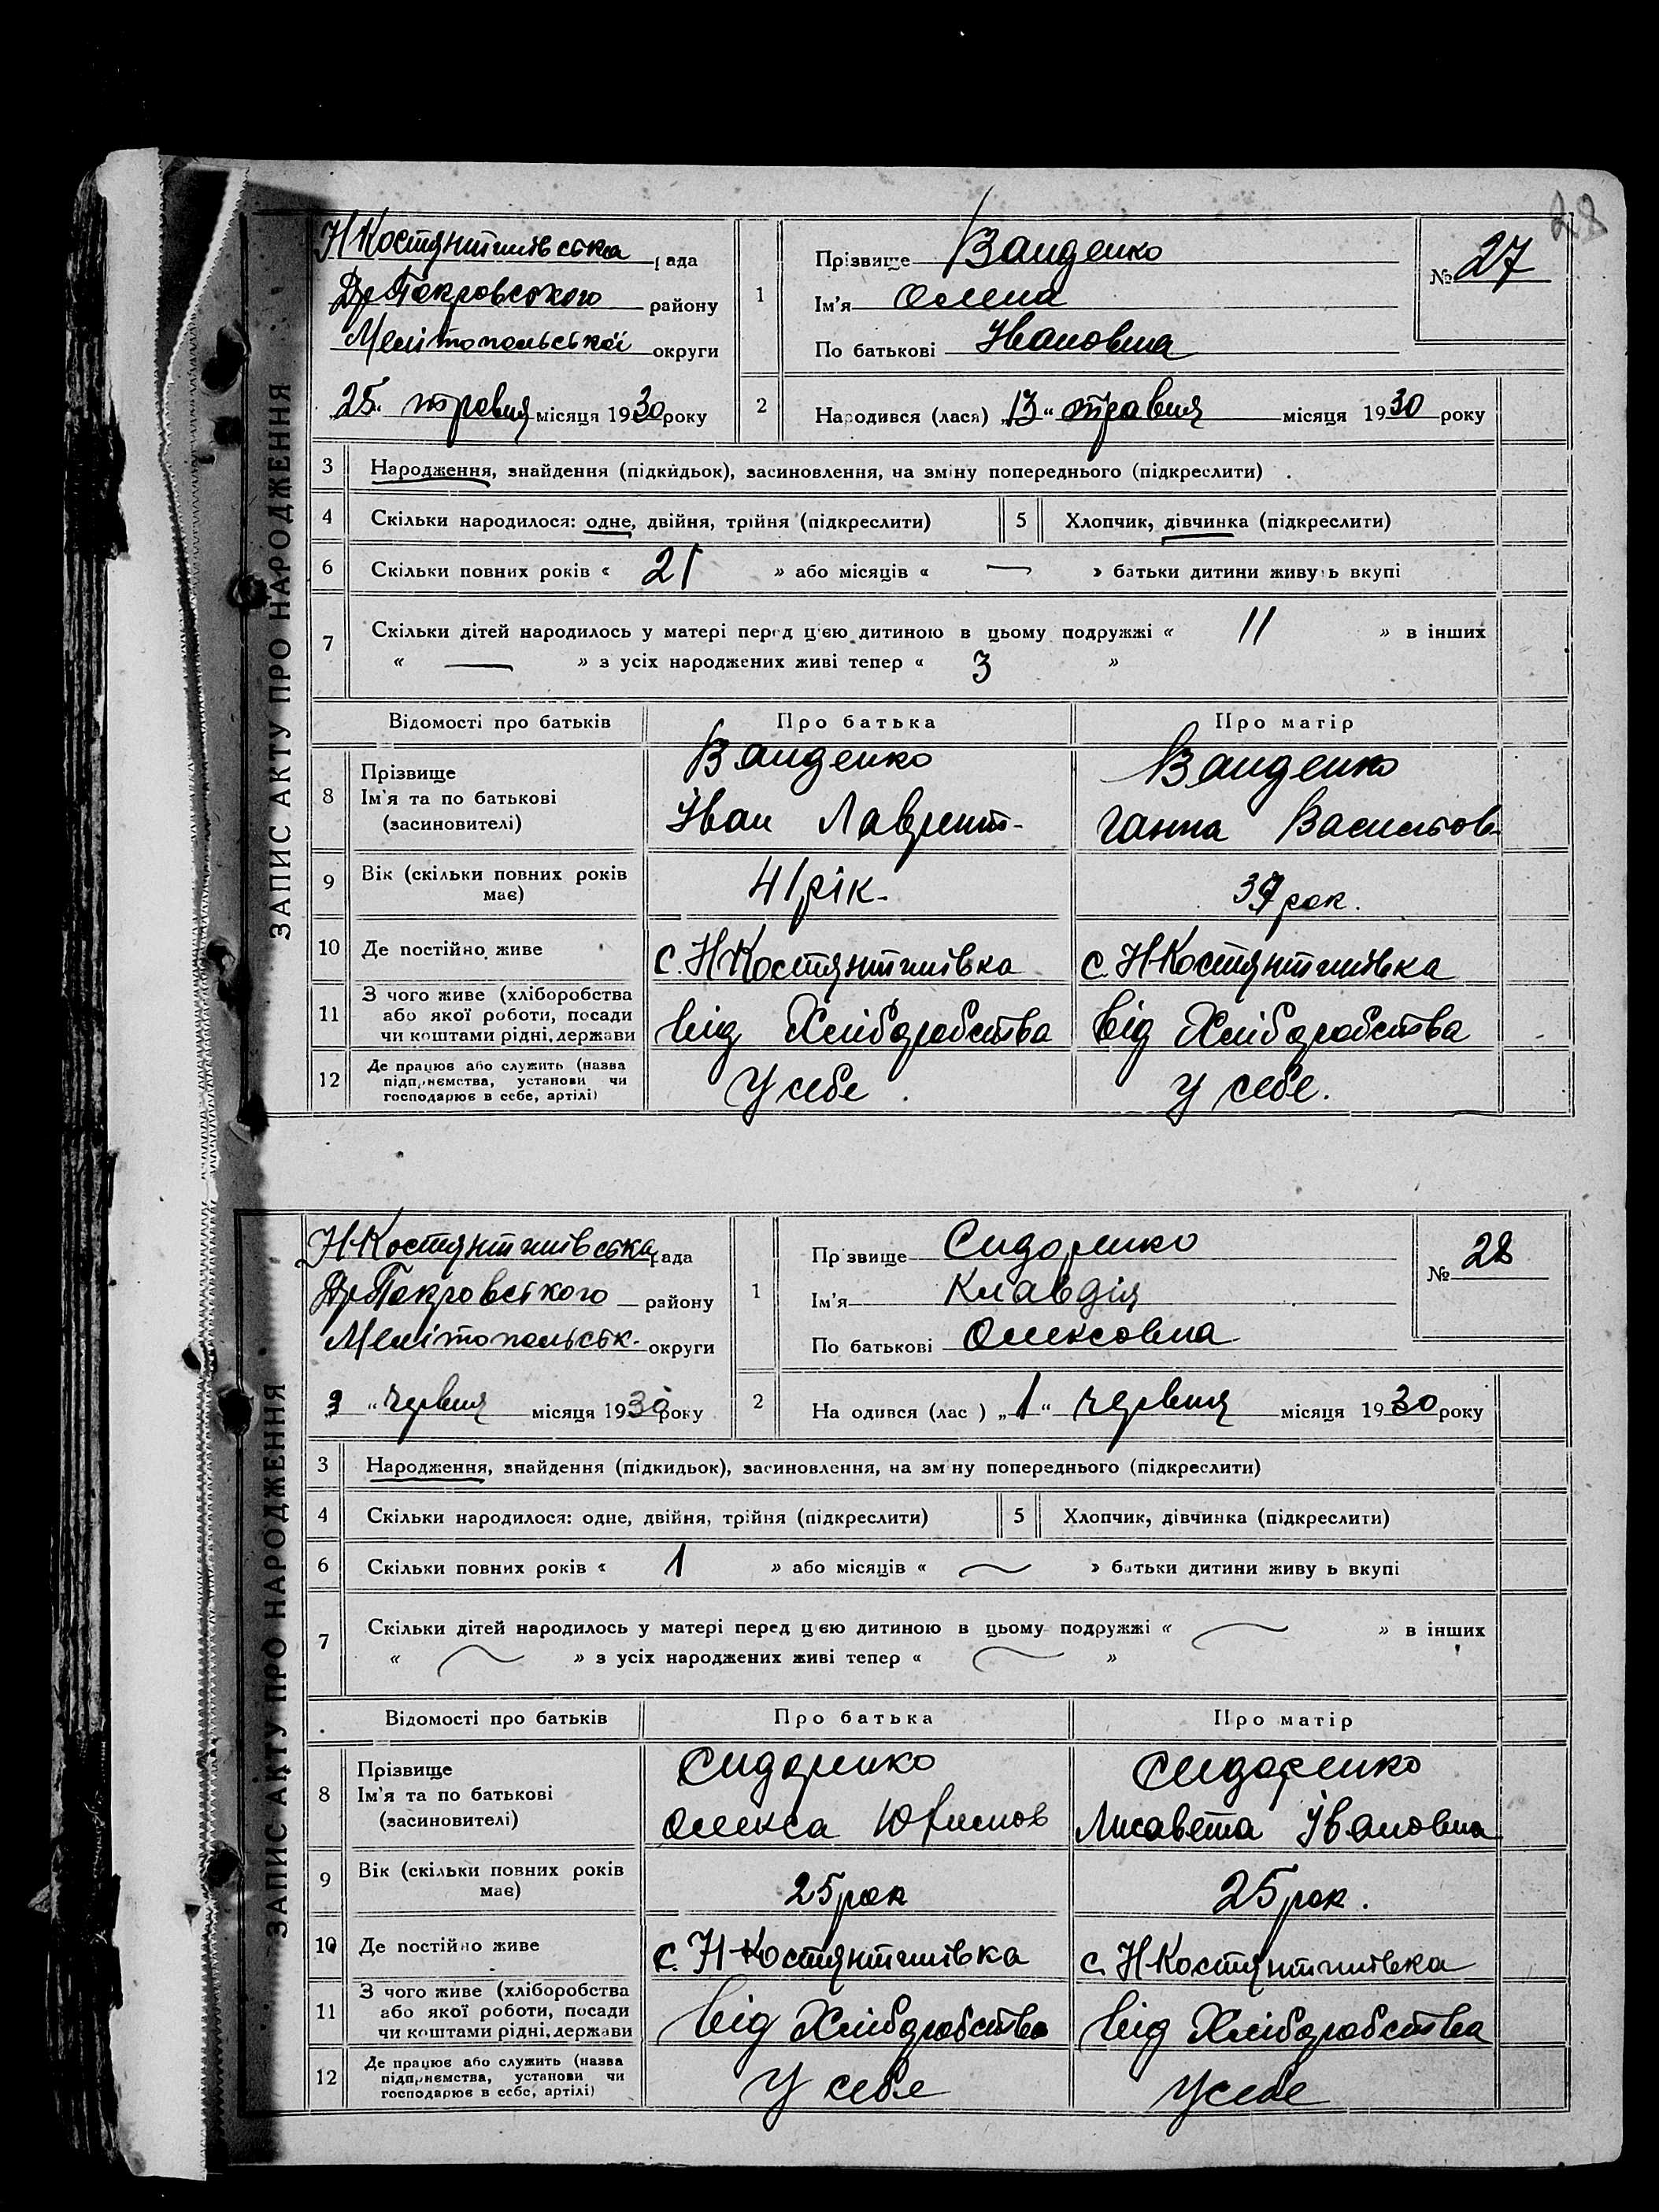 28
ЗАПИС АКТУ ПРО НАРОДЖЕННЯ
Н Костянтинівська рада
Др Покровського району
Мелітопольської округи
„25“ травня місяця 1930 року
1 Прізвище Ванденко
Ім'я Олена
По батькові Івановна
№ 27
2 Народився (лася) „13“ травня місяця 1930 року
3 Народження, знайдення (підкидьок), засиновлення, на зміну попереднього (підкреслити)
4 Скільки народилося: одне, двійня, трійня (підкреслити) 5 Хлопчик, дівчинка (підкреслити)
6 Скільки повних років « 21 » або місяців « — » батьки дитини живу ь вкупі
7 Скільки дітей народилось у матері перед цією дитиною в цьому подружжі « 11 » в інших
« — » з усіх народжених живі тепер « 3 »
Відомості про батьків Про батька Про матір
8 Прізвище Ім'я та по батькові (засиновителі) Ванденко Іван Лаврент- Ванденко Ганна Васильов
9 Вік (скільки повних років має) 41 рік. рок.
10 Де постійно живе с. Н Костянтинівка с. Н-Костянтинівка
11 З чого живе (хліборобства або якої роботи, посади чи коштами рідні, держави від Хліборобства від Хліборобства
12 Де працює або служить (назва підприємства, установи чи господарює в себе, артілі) У себе у себе.
ЗАПИС АКТУ ПРО НАРОДЖЕННЯ
Н-Костянтинівська рада
Др Покровського району
Мелітопольськ. округи
„3“ червня місяця 1930 року
1 Пр звище Сидоренко
Ім'я Клавдія
По батькові Олексовна
№ 28
2 На одився (лас ) „1“ червня місяця 1930 року
3 Народження, знайдення (підкидьок), засиновлення, на зм ну попереднього (підкреслити)
4 Скільки народилося: одне, двійня, трійня (підкреслити) 5 Хлопчик, дівчинка (підкреслити)
6 Скільки повних років « 1 » або місяців « — » батьки дитини живу ь вкупі
7 Скільки дітей народилось у матері перед цією дитиною в цьому подружжі « — » в інших
« — » з усіх народжених живі тепер « — »
Відомості про батьків Про батька Про матір
8 Прізвище Ім'я та по батькові (засиновителі) Сидоренко Олекса Сидоренко Лисавета Івановна
9 Вік (скільки повних років має) 25 рок 25 рок.
10 Де постійно живе с. Н-Костянтинівка с. Н-Костянтинівка
11 З чого живе (хліборобства або якої роботи, посади чи коштами рідні, держави від Хліборобства від Хліборобства
12 Де працює або служить (назва підприємства, установи чи господарює в себе, артілі) У себе У себе